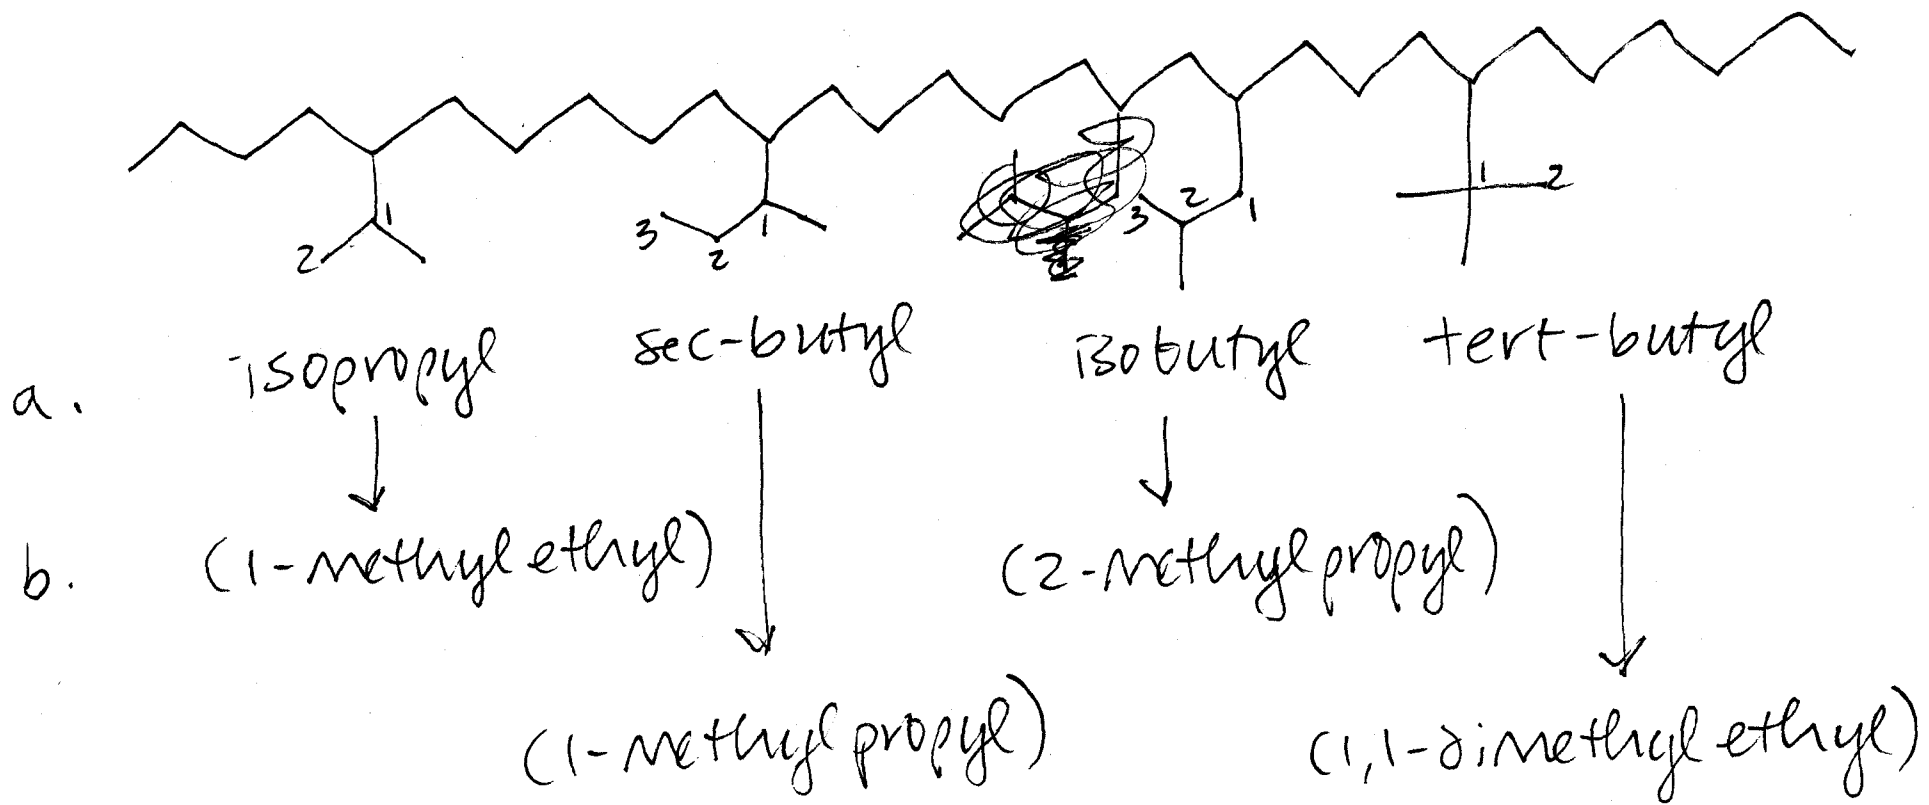 1
2
3
2
1
3
2
1
1
2
isopropyl sec-butyl isobutyl tert-butyl
a.
b. (1-methylethyl) (2-methylpropyl)
(1-methylpropyl) (1,1-dimethylethyl)